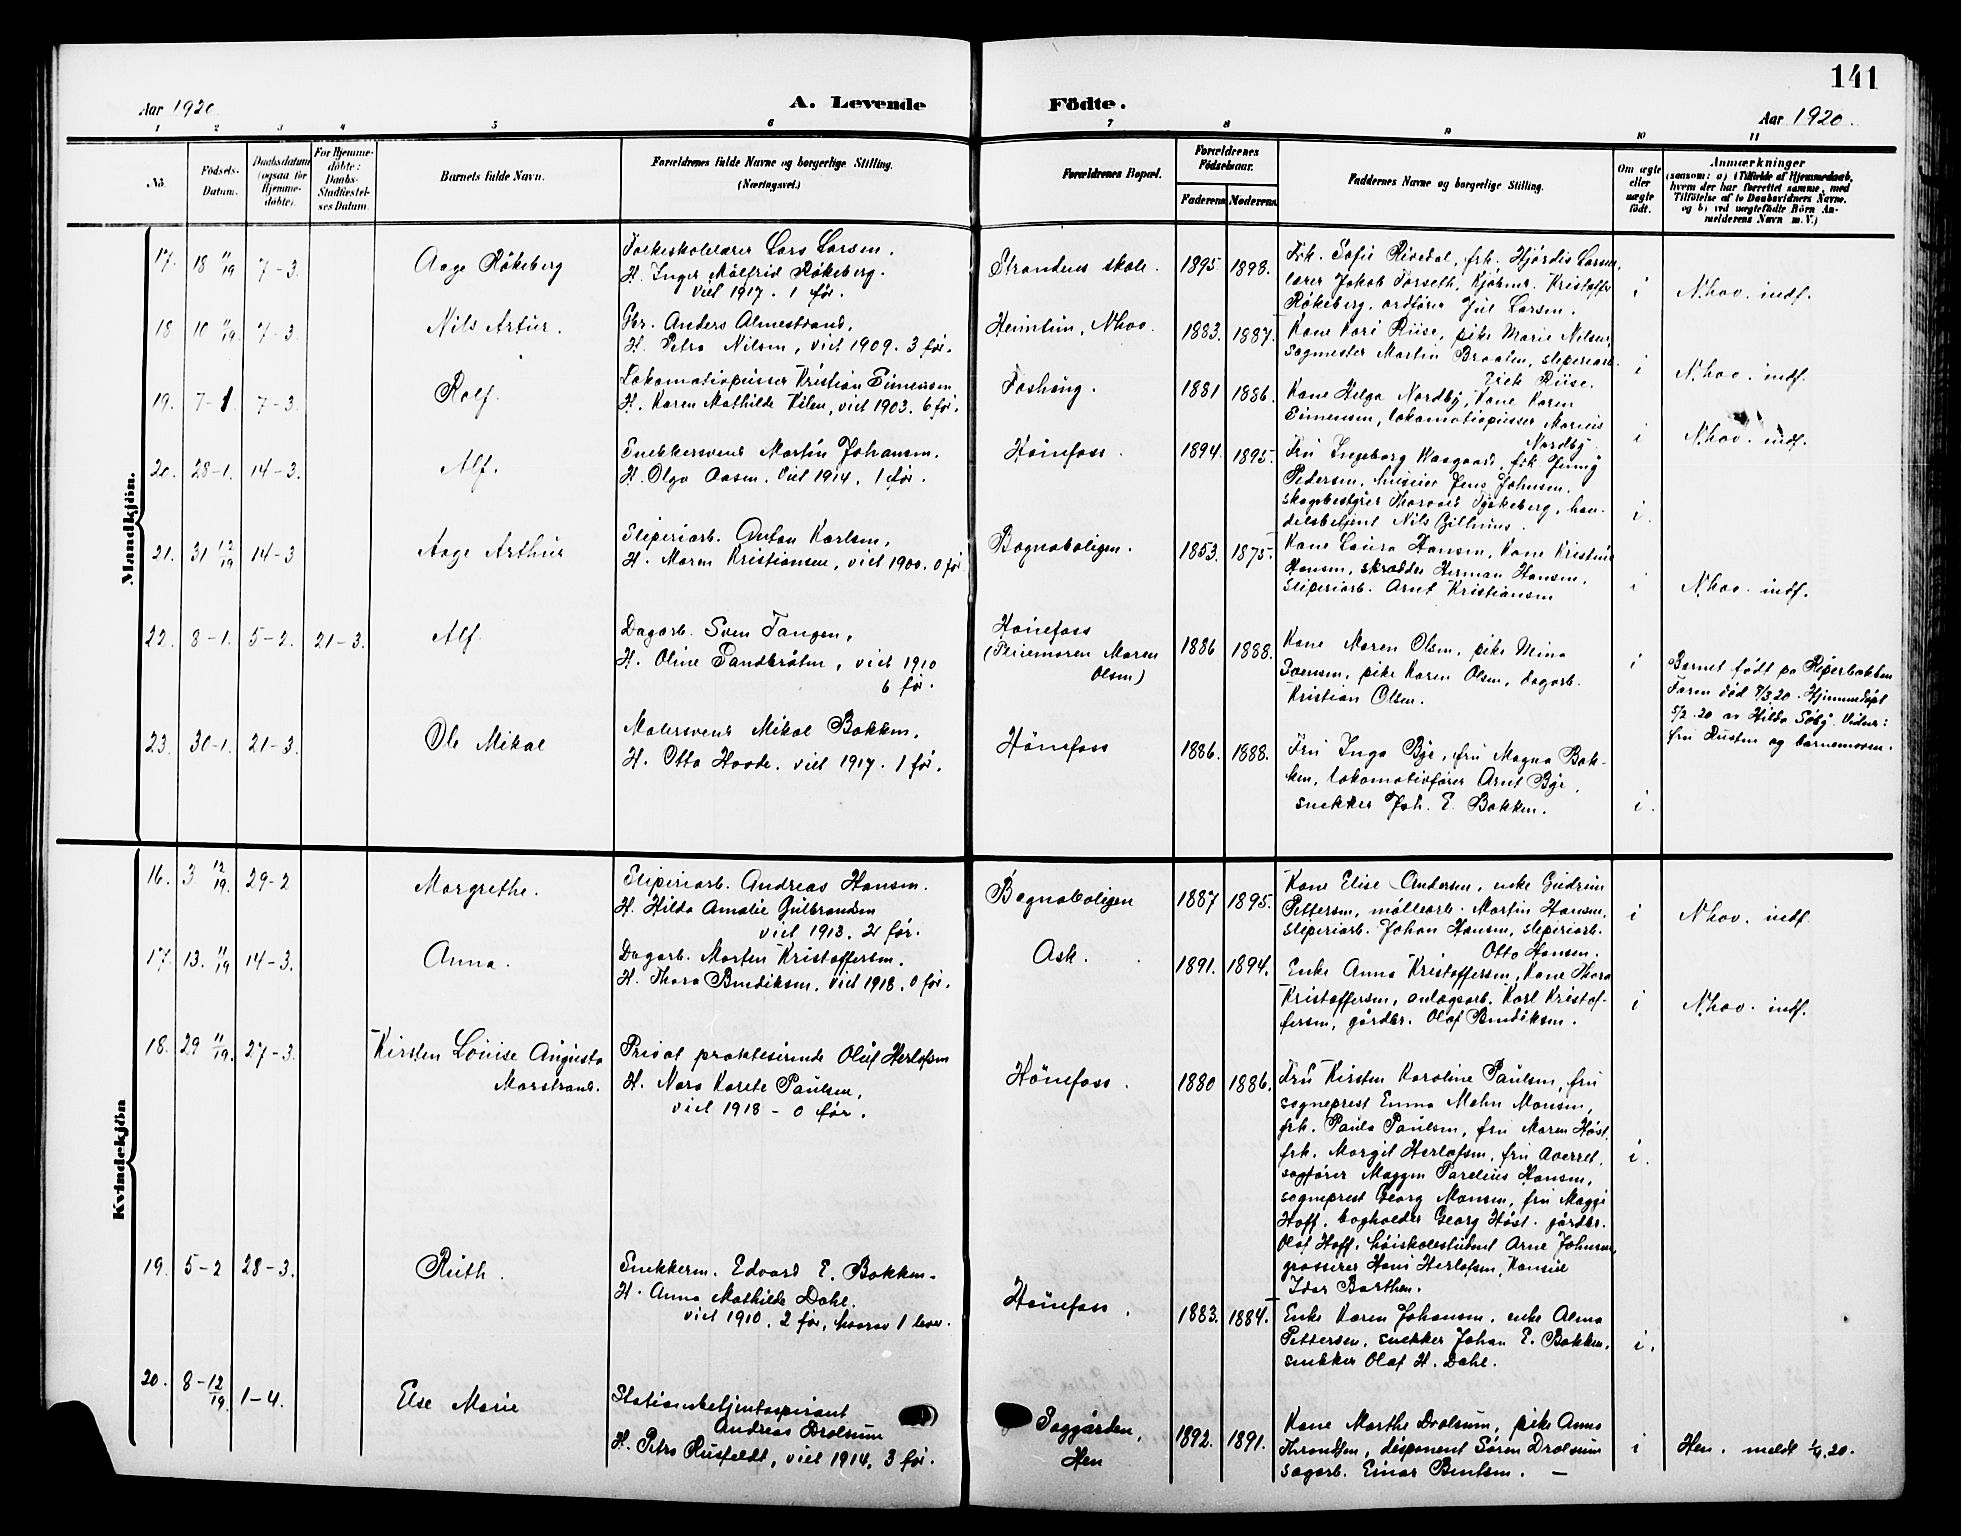 141
Aar 1920
A. Levende
Födte.
Aar 1920.
1 2 3 4 5 6 7 8 9 10 11
No.
Födsels-
Datum.
Daabsdatum
(ogsaa for
Hjemme-
döbte).
For Hjemme-
döbte:
Daabs-
Stadfæstel-
ses Datum.
Barnets fulde Navn.
Forældrenes fulde Navne og borgerlige Stilling.
(Næringsvei.)
Forældrenes Bopæl.
Forældrenes
Födselsaar.
Faderens
Moderens
Faddernes Navne og borgerlige Stilling.
Om ægte
eller
uægte
födt.
Anmærkninger
(saasom: a) i Tilfælde af Hjemmedaab,
hvem der har forrettet samme, med
Tilföielse af to Daabsvidners Navne.
og b) ved uægtefödte Börn An-
melderens Navn m. V.)
Mandkjön.
17. 18 11/19 7-3. Aage Rökeberg
Folkeskolelærer Lars Larsen.
H. Inger Målfrid Rökeberg.
viet 1917. 1 før.
Strandens skole. 1895. 1898.
Frk. Sofie Rivedal, frk. Hjördis Larsen,
lærer Jakob Forseth, kjöbm. Kristoffer
Rökeberg, ordförer Jul Larsen.
i N.hov. indf.
18 10 11/19. 7-3. Nils Artur.
Gbr. Anders Almestrand,
H. Petra Nilsen, viet 1909. 3 før.
Heimtun, N.hov. 1883. 1887.
Kone Kari Riise, pike Marie Nilsen,
sagmester Martin Braaten, sliperiarb.
Erik Riise.
i N.hov. indf.
19. 7-1 7-3. Rolf.
Lokomotivpusser Kristian Simensen
H. Karen Mathilde Vilen, viet 1903. 6 før.
Foshaug. 1881 1886.
Kone Helga Nordby, kone Karen
Simensen, lokomotivpusser Marius
Nordby
i N.hov. indf.
20. 28-1. 14-3. Alf.
Snekkersvend Martin Johansen.
H. Olga Aasen. Viet 1914. 1 før.
Hönefoss. 1894. 1895.
Fru Ingeborg Haagaard, frk Jenny
Pedersen, Jens Johnsen,
skogbestyrer Thorvald Tyskeberg, han-
delsbetjent Nils Gilhuus.
i.
21. 31 12/19 14-3 Aage Arthur
Sliperiarb. Anton Karlsen,
H. Maren Kristiansen, viet 1900. 0 før
Bægnaboligen. 1853. 1875.
Kone Laura Hansen, kone Kristine
Hansen, skrædder Herman Hansen,
sliperiarb. Arnt Kristiansen
i N.hov. indf.
22. 8-1. 5-2. 21-3. Alf.
Dagarb. Sven Tangen,
H. Oline Sandbråten, viet 1910
6 før.
Hönefoss
(Pleiemoren Maren
Olsen)
1886 1888.
Kone Maren Olsen, pike Mina
Svensen, pike Karen Olsen, dagarb.
Kristian Olsen.
i
Barnet födt på Riperbakken
Faren död 7/3 20. Hjemmedöpt
5/2 20 av Hilda Söby. Vidner:
fru Rusten og barnemoren.
23. 30-1. 21-3. Ole Mikal
Malersvend Mikal Bakken,
H. Otta Haade. viet 1917. 1 før.
Hönefoss 1886. 1888.
Fru Inga Bye, fru Magna Bak-
ken, lokomotivförer Arnt Bye,
snekker Joh. E. Bakken.
i.
Kvindekjön
16. 3 12/19. 29-2 Margrethe.
Sliperiarb. Andreas Hansen.
H. Hilda Amalie Gulbrandsen
viet 1913. 2 før.
Bægnaboligen 1887 1895.
Kone Elise Andersen, enke Gudrun
Pettersen, möllearb. Martin Hansen,
sliperiarb. Johan Hansen, sliperiarb.
Otto Hansen.
i N.hov. indf.
17. 13. 11/19 14-3. Anna.
Dagarb. Morten Kristoffersen.
H. Thora Bendiksen, viet 1918. 0 før.
Ask. 1891. 1894.
Enke Anna Kristoffersen, kone Thora
Kristoffersen, anlægsarb. Karl Kristof-
fersen, gårdbr. Olaf Bendiksen.
i N.hov. indf.
18. 29 11/19. 27-3. Kirsten Louise Augusta
Marstrand.
Privat praktiserende Oluf Herlofsen
H. Nora Karete Paulsen,
viet 1918 - 0 før.
Hönefoss. 1880 1886.
Fru Kirsten Karoline Paulsen, fru
sogneprest Emma Mohn Monsen,
frk. Paula Paulsen, fru Maren Höst,
frk. Margit Herlofsen, fru overret.
sagförer Maggen Parelius Hansen,
sogneprest Georg Monsen, fru Maggi
Hoff, bogholder Georg Höst. gårdbr.
Olaf Hoff, höiskolestudent Arne Johnsen,
grosserer Hans Herlofsen, konsul
Idar Barthen.
i.
19. 5-2 28-3. Ruth.
Snekkerm. Edvard E. Bakken.
H. Anna Mathilde Dahl.
viet 1910. 2 før, hvorav 1 lever.
Hönefoss. 1883. 1884.
Enke Karen Johansen, enke Alma
Pettersen, snekker Johan E. Bakken,
snekker Olaf H. Dahl.
i.
20. 8-12/19. 1-4. Else Marie
Stationsbetjentaspirant
Andreas Drolsum
H. Petra Rusfeldt, viet 1914. 3 før.
Saggården,
Hen
1892. 1891.
Kone Marthe Drolsum, pike Anna
Throndsen, disponent Sören Drolsum
sagarb. Einar Bentsen. —
i Hen. meldt 1/4. 20.